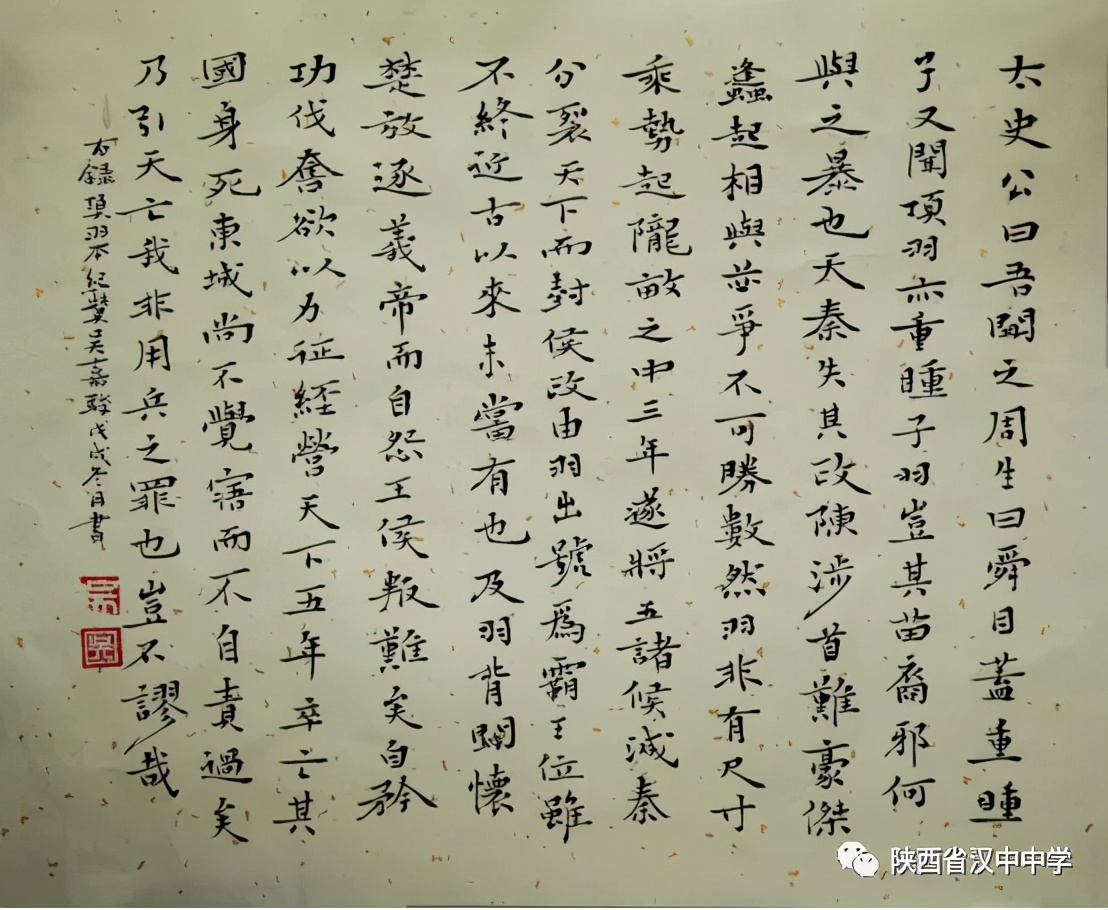 太史公曰吾聞之周生曰舜目蓋重瞳
子又聞項羽亦重瞳子羽豈其苗裔邪何
與之暴也天秦失其政陳涉首難豪傑
蠭起相與並爭不可勝數然羽非有尺寸
乘勢起隴畝之中三年遂將五諸侯滅秦
分裂天下而封侯政由羽出號為霸王位雖
不終近古以來未當有也及羽背關懷
楚放逐義帝而自怨王侯叛難矣自矜
功伐奮欲以力征經營天下五年卒亡其
國身死東城尚不覺寤而不自責過矣
乃引天亡我非用兵之罪也豈不謬哉
右錄項羽本紀贊吳嘉戊戌冬月書
陕西省汉中中学